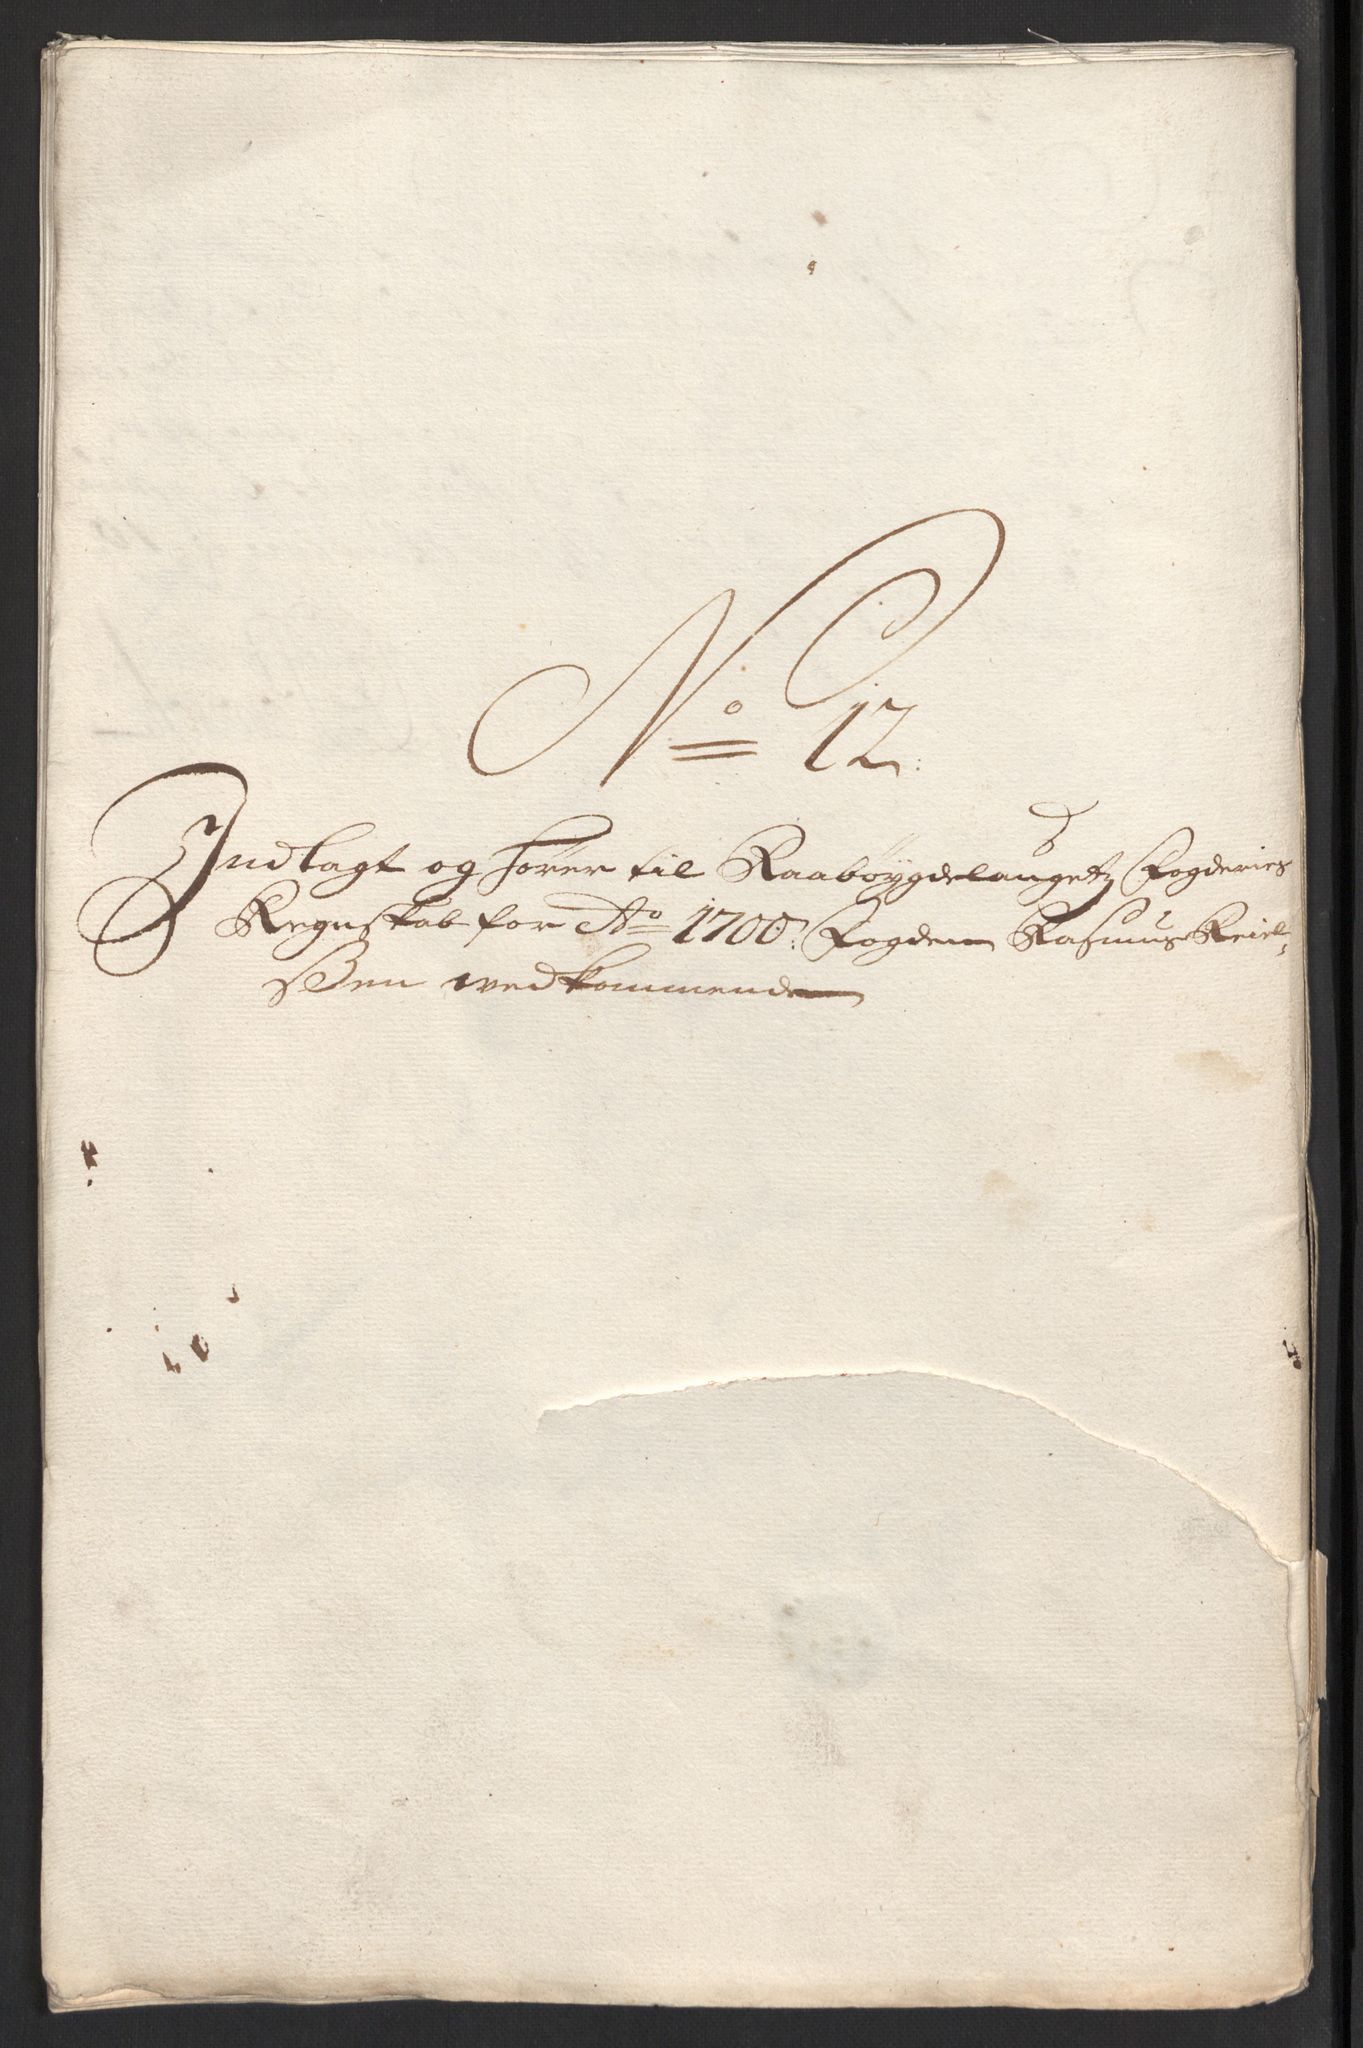 No 12:
Indlagt og hører til Raabøygdelaugetz Fogderies
Regnskab for Ao 1700: Fogden Rasmus Keiel-
ßen wedkommende